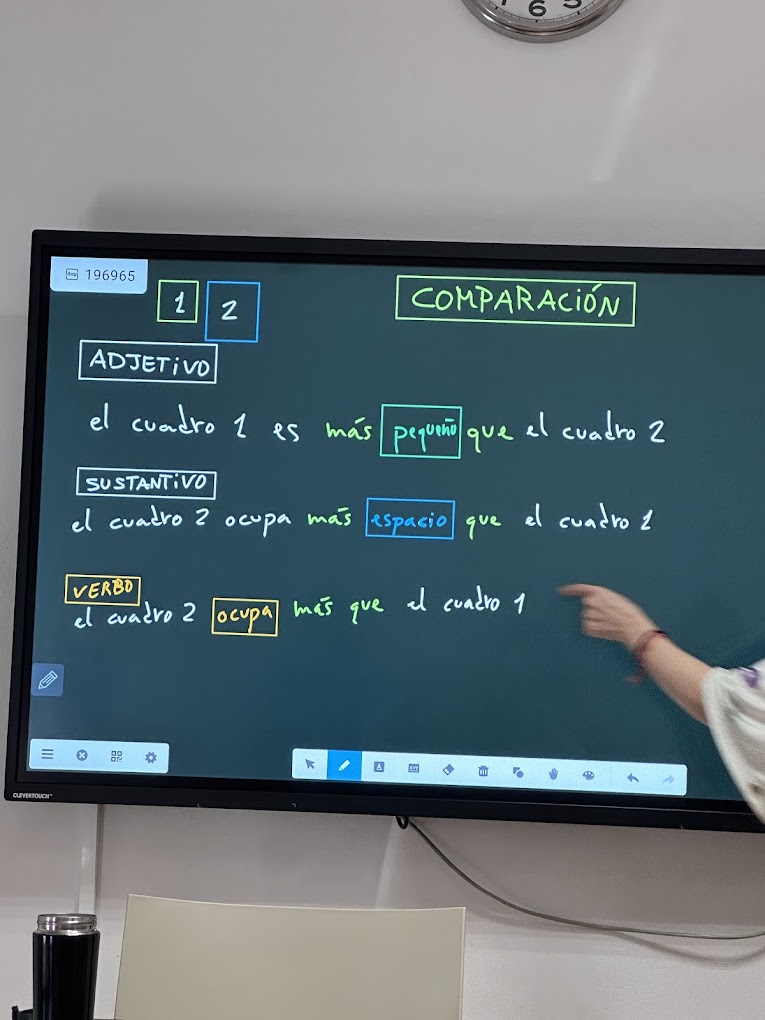 6 5
196965
1 2
COMPARACIÓN
ADJETIVO
el cuadro 1 es más pequeño que el cuadro 2
SUSTANTIVO
el cuadro 2 ocupa más espacio que el cuadro 1
VERBO
el cuadro 2 ocupa más que el cuadro 1
CLEVERTOUCH